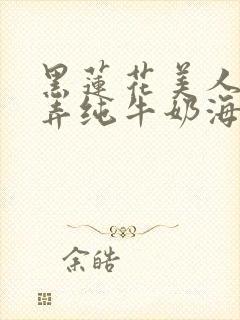 黑蓮花美人
弄纯牛奶海
余皓